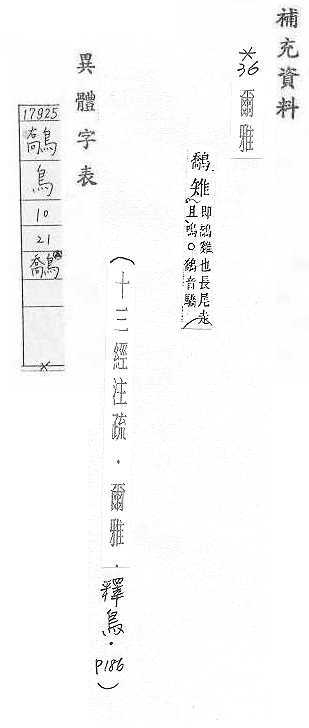 補充資料
*36 爾雅
鷮雉
即鷮雞也長尾走
且鳴○鷮音驕
(十三經注疏．爾雅．釋鳥．P186)
異體字表
17925
鳥
10
21
鷮